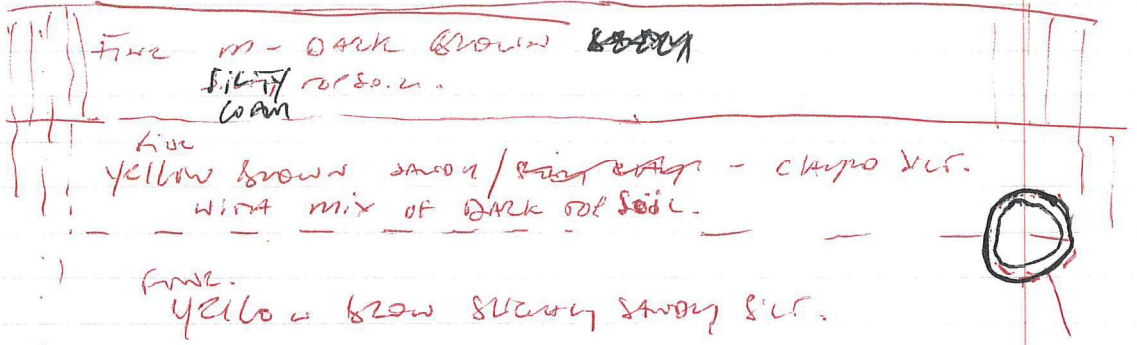 Fine m- DARK BROWN
SILTY TOPSOIL.
LOAM
Fine
Yellow BROWN SANDY / - CLAYO SILT.
WITH MIX OF DARK TOP SOIL.
Fine.
YELLOW BROW SLIGHTLY SANDY SILT.